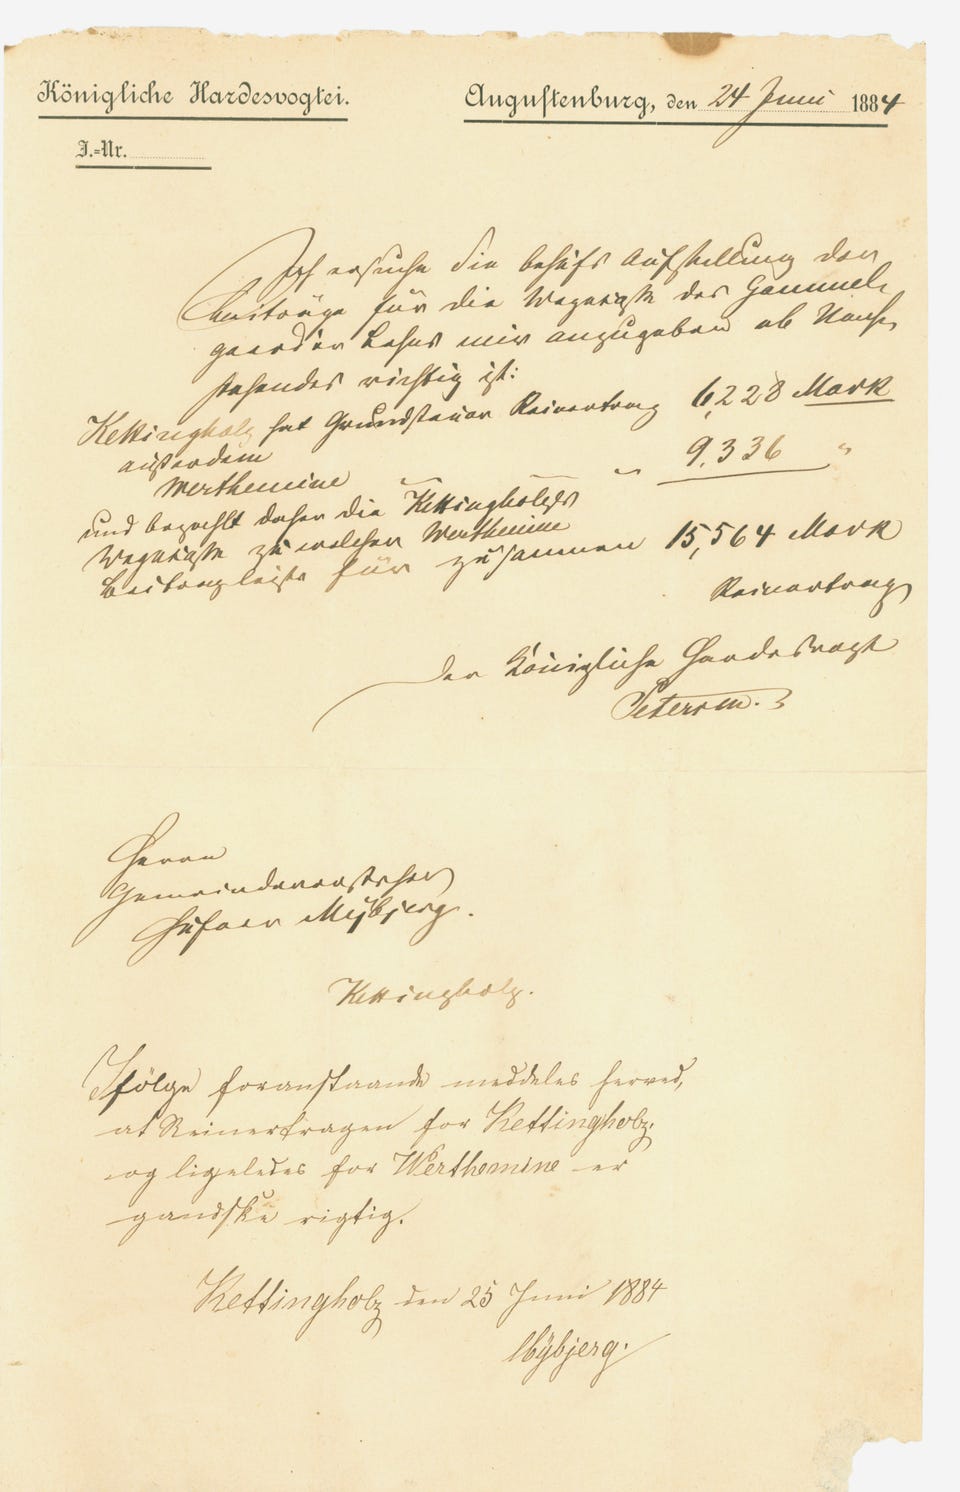 Königliche Hardesvogtei.
Augustenburg, den 24 Juni 1884
J.-Nr.
Ich ersuche Sie behufs Aufstellung der
Beiträge für die Wegecasse des Gammel-
gaarder Lehns mir anzugeben ob Nach-
stehendes richtig ist:
Kettingholz hat Grundsteuer Reinertrag 6,228 Mark
außerdem
Werthemine " " 9,336 "
und bezahlt daher die Kettingholzer
Wegecasse zu welcher Werthemine
Beitrag leiste für zusammen 15,564 Mark
Reinertrag
Der Königliche Hardesvogt
Petersen.
Herrn
Gemeindevorsteher
Hufner Mybjerg.
Kettingholz.
Ifölge foranstaande meddeles herved,
at Reinertragen for Kettingholz
og ligeledes for Werthemine er
gandske rigtig.
Kettingholz den 25 Juni 1884
Mÿbjerg.